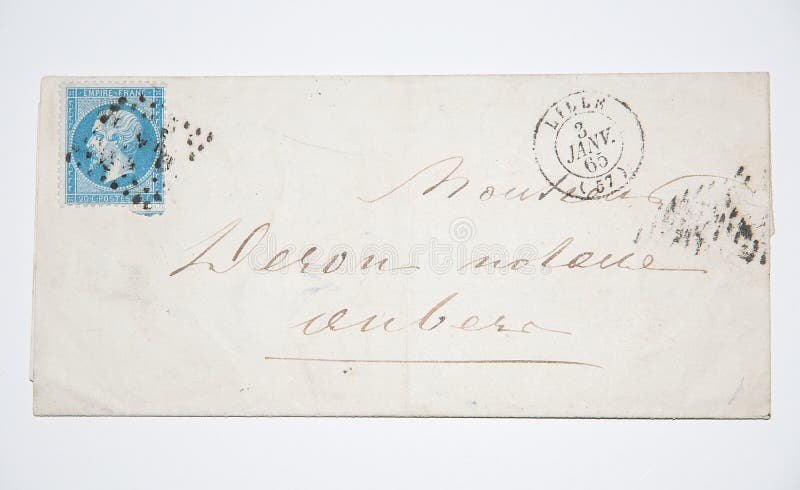 EMPIRE FRANC
20 C POSTES
LILLE
3
JANV.
65
(57)
Monsieur
Deron notaire
auberc
dreamstime